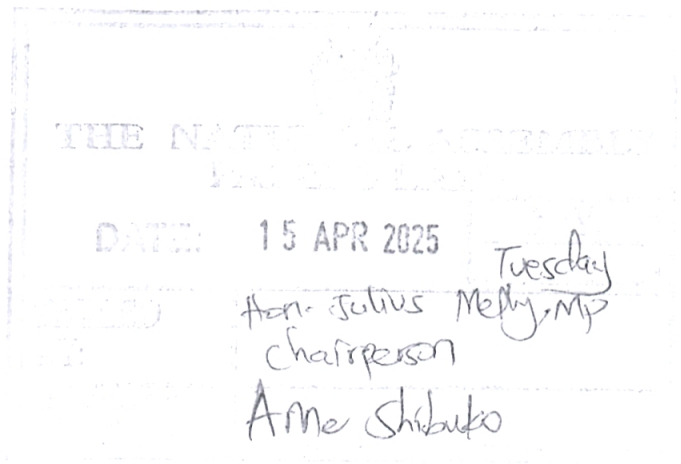 THE NATIONAL ASSEMBLY
PAPERS LAID
DATE: 15 APR 2025
Tuesday
Hon. Julius Melly, MP
Chairperson
Anne Shibuko